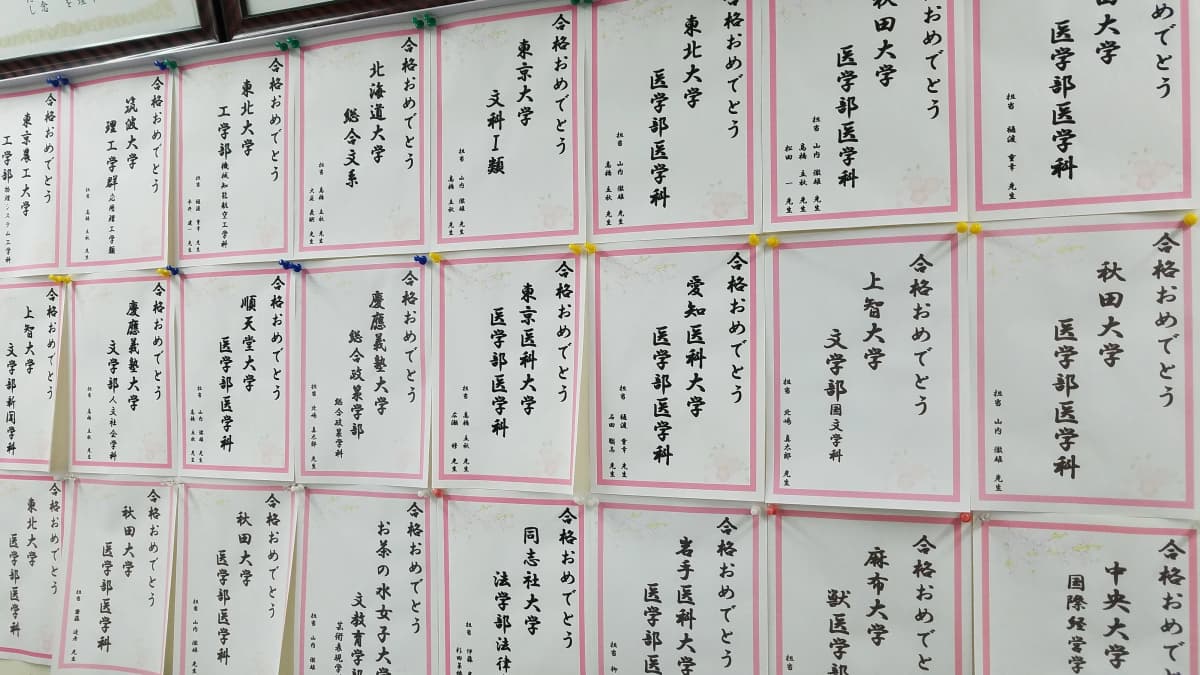 合格おめでとう
大学
医学部医学科
担当 樋渡 重幸 先生
合格おめでとう
秋田大学
医学部医学科
担当 山内 徹雄 先生
高橋 立秋 先生
松田 一 先生
合格おめでとう
東北大学
医学部医学科
担当 山内 徹雄 先生
高橋 立秋 先生
合格おめでとう
東京大学
文科I類
担当 山内 徹雄 先生
高橋 立秋 先生
合格おめでとう
北海道大学
総合文系
担当 高橋 立秋 先生
合格おめでとう
東北大学
工学部機械知能航空工学科
担当 樋渡 重幸 先生
合格おめでとう
筑波大学
理工学群応用理工学類
担当 高橋 立秋 先生
合格おめでとう
東京農工大学
工学部物理システム工学科
合格おめでとう
秋田大学
医学部医学科
担当 山内 徹雄 先生
合格おめでとう
上智大学
文学部国文学科
担当 北嶋 真太郎 先生
合格おめでとう
愛知医科大学
医学部医学科
担当 樋渡 重幸 先生
石田 聡高 先生
合格おめでとう
東京医科大学
医学部医学科
担当 高橋 立秋 先生
石瀬 修 先生
合格おめでとう
慶應義塾大学
総合政策学部
総合政策学科
担当 北嶋 真太郎 先生
合格おめでとう
順天堂大学
医学部医学科
担当 山内 徹雄 先生
高橋 立秋 先生
合格おめでとう
慶應義塾大学
文学部人文社会学科
担当 高橋 立秋 先生
合格おめでとう
上智大学
文学部新聞学科
合格おめでと
中央大学
国際経営学
合格おめでと
麻布大学
獣医学部
担当
合格おめでとう
岩手医科大学
医学部医
担当
合格おめでとう
同志社大学
法学部法律
担当 伊藤
合格おめでとう
お茶の水女子大学
文教育学部
芸術表現学
担当 山内 徹雄
合格おめでとう
秋田大学
医学部医学科
担当 山内 徹雄 先生
合格おめでとう
秋田大学
医学部医学科
担当 齋藤 先生
合格おめでとう
東北大学
医学部医学科